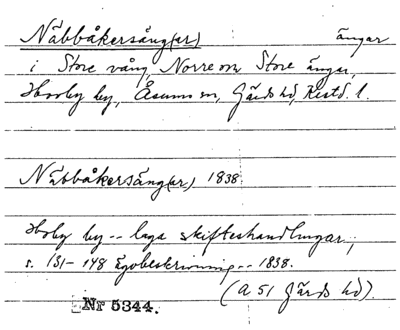 Näbbåkersäng(ar) ängar
i Store vång, Norre o Store ängar,
Horby by, Åsums sn, Gärds hd, Kristd. l.
Näbbåkersäng(ar) 1838
Horby by -- laga skifteshandlingar,
s. 131-148 Egobeskrivning -- 1838.
(a 51 Gärds hd).
Nr 5344.